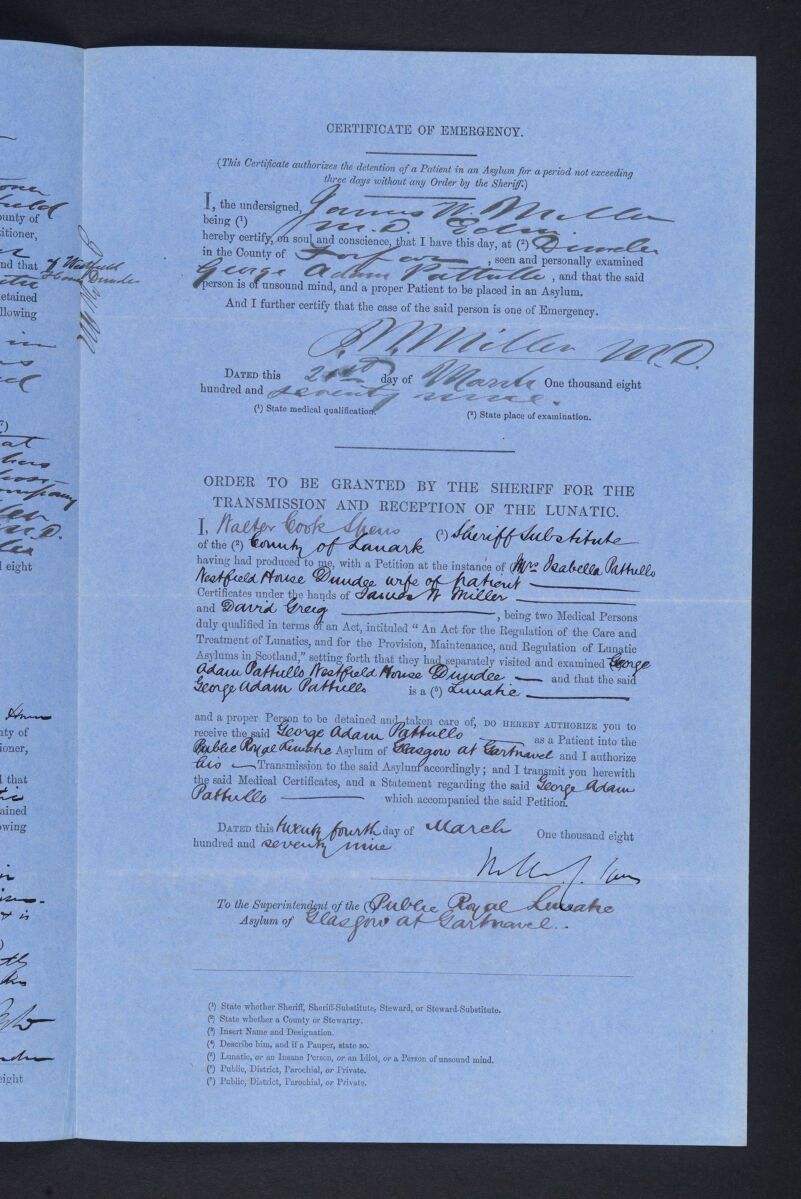 CERTIFICATE OF EMERGENCY.
(This Certificate authorizes the detention of a Patient in an Asylum for a period not exceeding
three days without any Order by the Sheriff.)
I, the undersigned, James W. Miller
being (¹) M.D. Edin
hereby certify, on soul and conscience, that I have this day, at (²) Dundee
in the County of Forfar , seen and personally examined
George Adam Pattullo , and that the said
person is of unsound mind, and a proper Patient to be placed in an Asylum.
And I further certify that the case of the said person is one of Emergency.
J. W. Miller M.D.
DATED this 21st day of March One thousand eight
hundred and seventy nine.
(¹) State medical qualification. (²) State place of examination.
ORDER TO BE GRANTED BY THE SHERIFF FOR THE
TRANSMISSION AND RECEPTION OF THE LUNATIC.
I, Walter Cook Spens (¹) Sheriff Substitute
of the (²) County of Lanark
having had produced to me, with a Petition at the instance of (³) Mrs Isabella Pattullo
Westfield House Dundee wife of patient
Certificates under the hands of James W Miller
and David Greig , being two Medical Persons
duly qualified in terms of an Act, intituled “ An Act for the Regulation of the Care and
Treatment of Lunatics, and for the Provision, Maintenance, and Regulation of Lunatic
Asylums in Scotland,” setting forth that they had separately visited and examined George
Adam Pattullo Westfield House Dundee and that the said
George Adam Pattullo is a (⁵) Lunatic
and a proper Person to be detained and taken care of, DO HEREBY AUTHORIZE you to
receive the said George Adam Pattullo as a Patient into the
Public Royal Lunatic Asylum of Glasgow at Gartnavel and I authorize
his Transmission to the said Asylum accordingly ; and I transmit you herewith
the said Medical Certificates, and a Statement regarding the said George Adam
Pattullo which accompanied the said Petition.
DATED this twenty fourth day of March One thousand eight
hundred and seventy nine
To the Superintendent of the (⁷) Public Royal Lunatic
Asylum of Glasgow at Gartnavel.
(¹) State whether Sheriff, Sheriff-Substitute, Steward, or Steward-Substitute.
(²) State whether a County or Stewartry.
(³) Insert Name and Designation.
(⁴) Describe him, and if a Pauper, state so.
(⁵) Lunatic, or an Insane Person, or an Idiot, or a Person of unsound mind.
(⁶) Public, District, Parochial, or Private.
(⁷) Public, District, Parochial, or Private.
ounty of
itioner,
nd that
of Westfield
House Dundee
etained
llowing
company
M.D.
l eight
nty of
ioner,
l that
ained
owing
eight